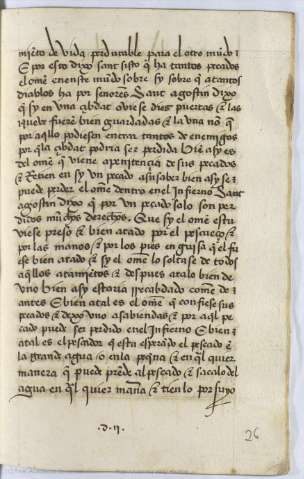 miẽto de vida perdurable para el otro mũdo ⁊
E por esto dixo sant sisto q̃ ha tantos pecados
el omẽ en este mũdo sobre sy sobre q̃ atantos
diablos ha por señores Sant agostin dixo
que sy en vna çibdat oviese diez puertas ⁊ las
nueve fuerẽ bien guardadas ⁊ la vna nõ q̃
por aq̃llo podiesen entrar tantos de enemigos
por q̃ la çibdat podria ser perdida bie asy es
del omẽ q̃ viene apenitẽçia de sus pecados
⁊ Retien en sy vn pecado a su saber bien asy se
puede perder el omẽ dentro en el Infierno Sant
agostin dixo q̃ por vn pecado solo son per
didos muchos derechos Que sy el omẽ estu
viese preso ⁊ bien atado por el pescueço ⁊
por las manos ⁊ por los pies en guisa q̃ el fue
se bien atado ⁊ sy el omẽ lo soltase de todos
aq̃llos atamiẽtos ⁊ despues atalo bien de
vno bien asy estaria rrecabdado como de
antes E bien atal es el omẽ q̃ confiese sus
pecados ⁊ dexo vno asabiendas ⁊ por aq̃l pe
cado puede ser perdido en el Infierno E bien
atal es el pescador q̃ esta esperãdo el pescado ẽ
la grande agua o en la peq̃na ⁊ en q̃l quier
manera q̃ puede prẽde al pescado ⁊ sacalo del
agua en q̃l quier maña ⁊ tienlo por suyo
.d.ij.
26